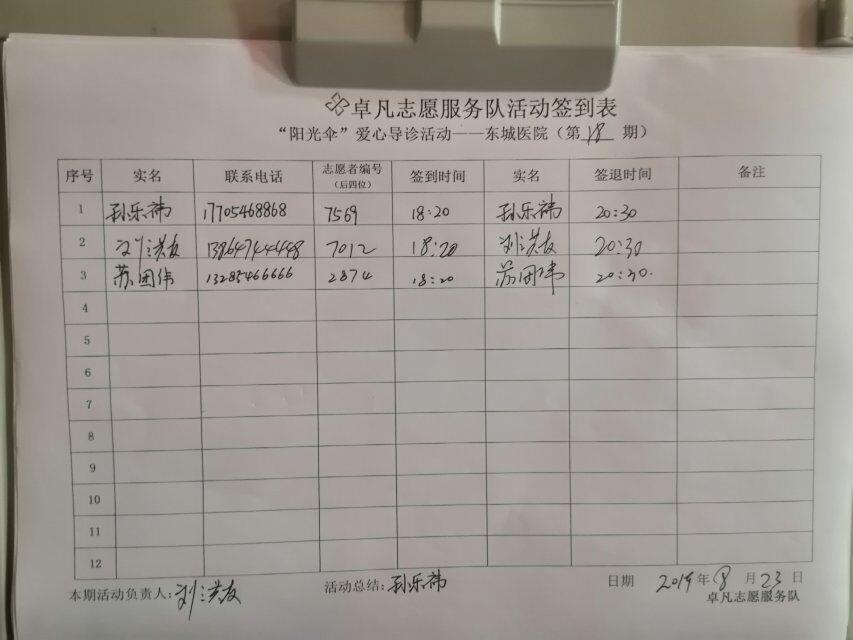 卓凡志愿服务队活动签到表
“阳光伞”爱心导诊活动——东城医院（第 18 期）
序号 实名 联系电话 志愿者编号（后四位） 签到时间 实名 签退时间 备注
1 孙乐祎 17705468868 7569 18:20 孙乐祎 20:30
2 刘洪友 13864744448 7012 18:20 刘洪友 20:30
3 苏团伟 13285466666 2874 18:20 苏团伟 20:30.
4
5
6
7
8
9
10
11
12
本期活动负责人: 刘洪友 活动总结: 孙乐祎 日期 2019 年 8 月 23 日
卓凡志愿服务队